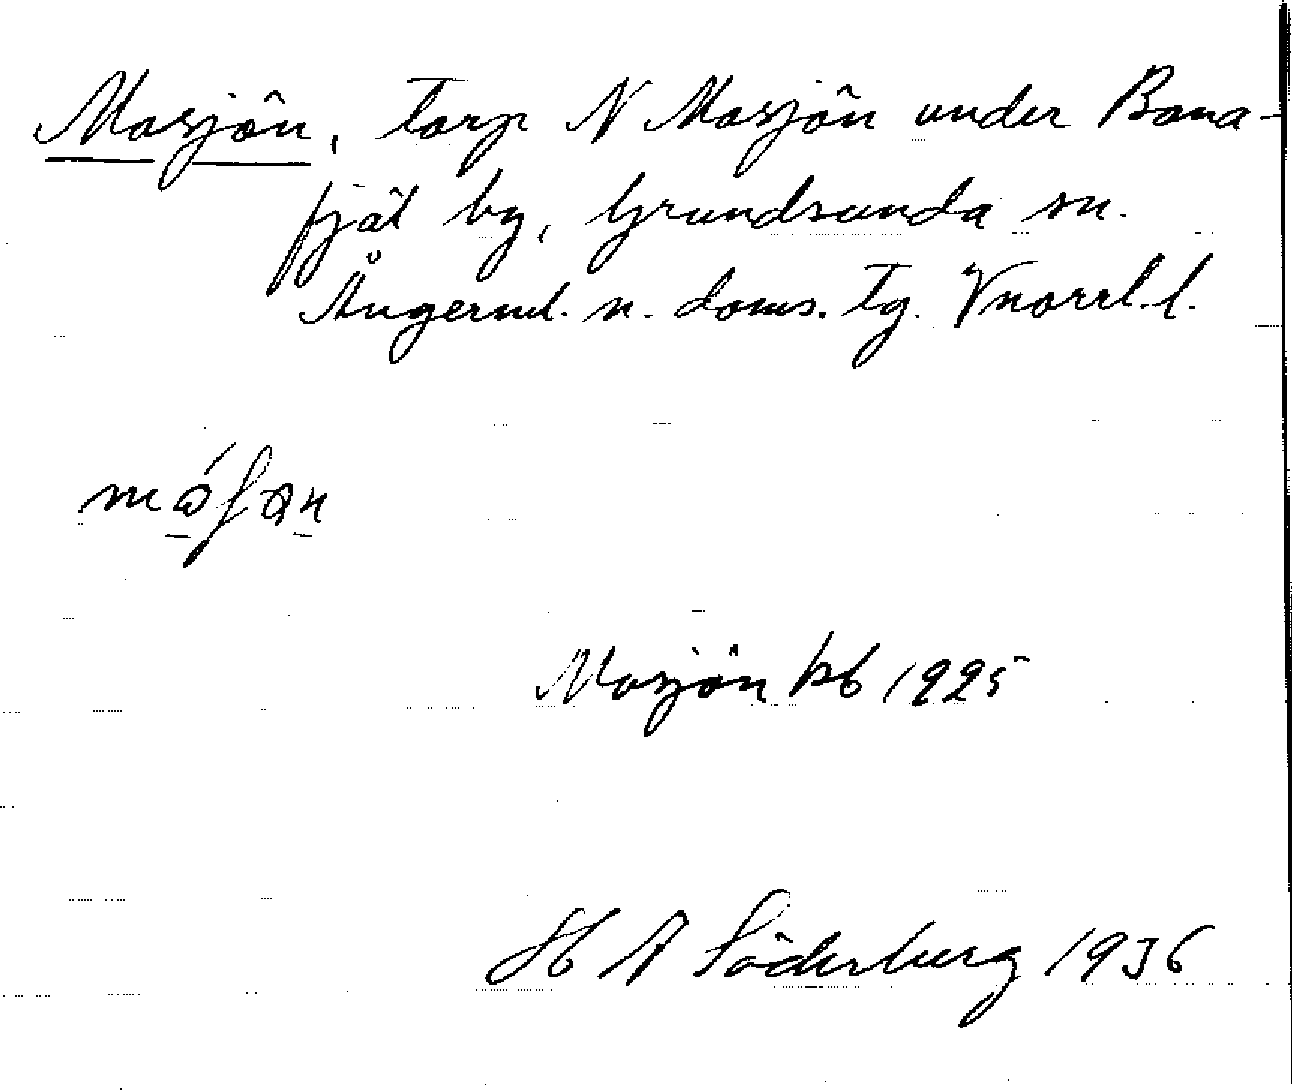 Mosjön, torp N Mosjön under Bana-
fjäl by, Grundsunda sn.
Ångerml. n. doms. tg. Vnorrl. l.
Mosjön kb 1925
H A Söderberg 1936